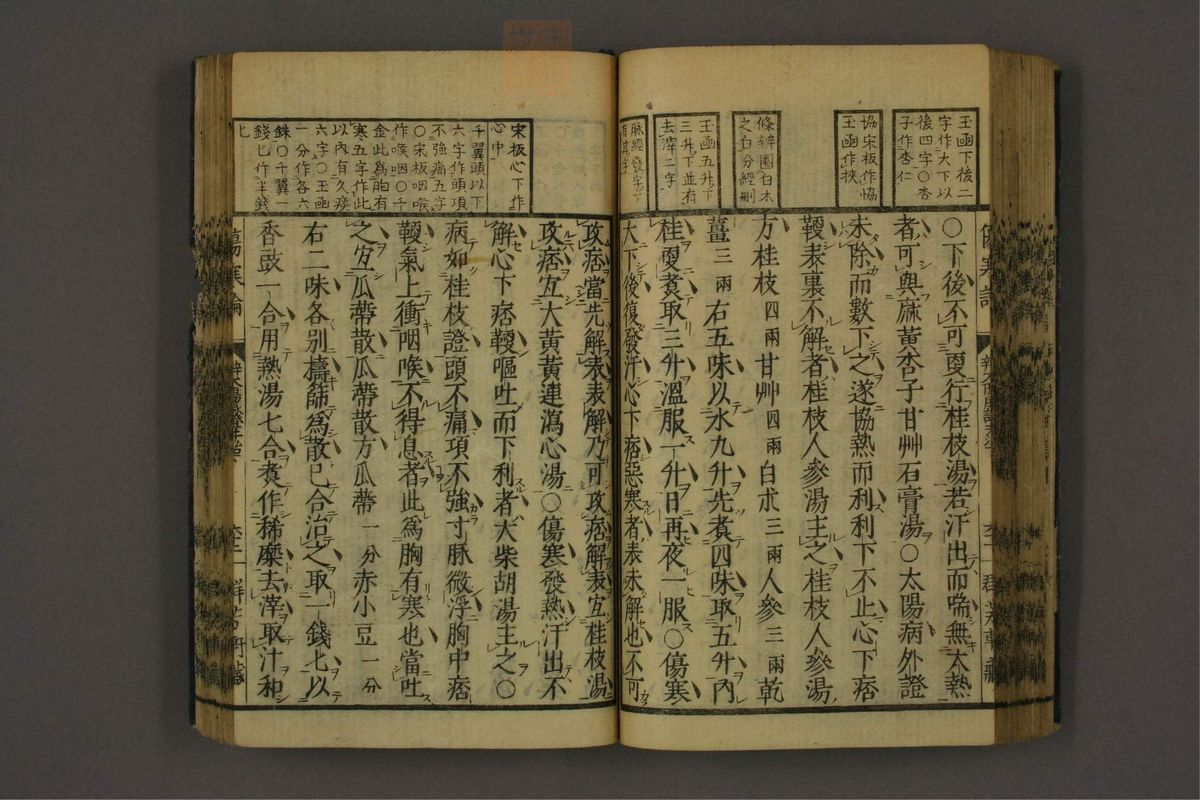 玉函下後二
字作大下以
後四字〇杏
子作杏仁
協宋板作協
玉函作挾
條辨圈白朮
之白分經刪
玉函五升下
三升下並有
去滓二字
脈經發字下
有其字
〇下後不可更行桂枝湯若汗出而喘無大熱
者可與麻黃杏子甘艸石膏湯〇太陽病外證
未除而數下之遂協熱而利利下不止心下痞
鞕表裏不解者桂枝人參湯主之桂枝人參湯
方桂枝四兩甘艸四兩白朮三兩人參三兩乾
薑三兩右五味以水九升先煮四味取五升內
桂更煮取三升溫服一升日再夜一服〇傷寒
大下後復發汗心下痞惡寒者表未解也不可
宋板心下作
心中
千翼頭以下
六字作頭項
不強痛五字
〇宋板咽喉
作喉咽〇千
金此為胸有
寒五字作此
以內有久痰
六字〇玉函
一分作各六
銖〇千翼一
錢匕作半錢
匕
攻痞當先解表表解乃可攻痞解表宜桂枝湯
攻痞宜大黃黃連瀉心湯〇傷寒發熱汗出不
解心下痞鞕嘔吐而下利者大柴胡湯主之〇
病如桂枝證頭不痛項不強寸脈微浮胸中痞
鞕氣上衝咽喉不得息者此為胸有寒也當吐
之宜瓜蒂散瓜蒂散方瓜蒂一分赤小豆一分
右二味各別擣篩為散已合治之取一錢匕以
香豉一合用熱湯七合煮作稀糜去滓取汁和
傷寒論